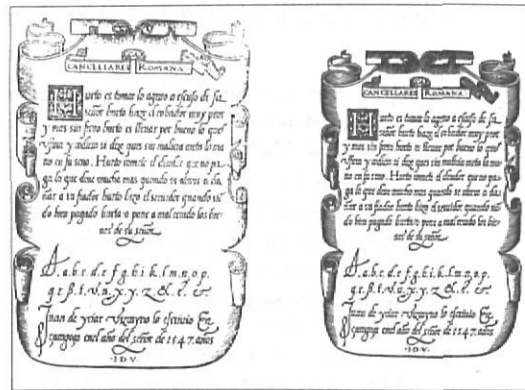 CANCELLARES ROMANA
Hurto es tomar lo ageno a escuso de su
señor hurto haze el robador muy
y mas sin freno hurto es lleuar por bueno lo que
si dize ques sin malicia
no en su seno. Hurto comete el deudor que no pa
ga lo que deue mucho mas quando se
a su fiador hurto hizo el quando
do bien pagado hurta y pone a mal recado los bie
nes de su señor.
A.a.b.c.d.e.f.g.h.i.k.l.m.n.o.p.
q.r.ß.s.t.v.u.x.y.z.
Juan de yciar Vizcayno lo escriuia En
çaragoça enel año del señor de 1547. años
·I·D·V·
CANCELLARES ROMANA
Hurto es tomar lo ageno a escuso de su
señor hurto haze el robador muy
y mas sin freno hurto es lleuar por bueno lo que
si dize ques sin malicia
no en su seno. Hurto comete el deudor que no pa
ga lo que deue mucho mas quando se
a su fiador hurto hizo el quando
do bien pagado hurta y pone a mal recado los bie
nes de su señor.
A.a.b.c.d.e.f.g.h.i.k.l.m.n.o.p.
q.r.ß.s.t.v.u.x.y.z.
Juan de yciar Vizcayno lo escriuia En
çaragoça enel año del señor de 1547. años
·I·D·V·